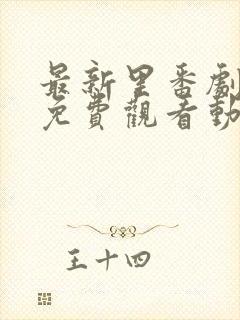 最新里番劇
免費觀看動
王十四